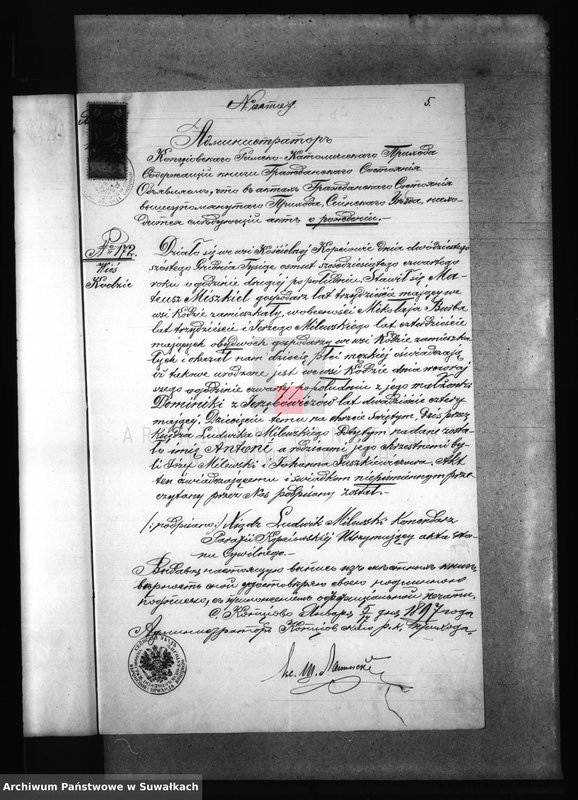 5.
Администраторъ
Копціовскаго Римско-Католическаго Прихода
Содержащій книги Гражданскаго Состоянія
Объявляетъ, что въ актахъ Гражданскаго Состоянія
вышеупомянутаго Прихода, Сейнскаго Уѣзда, нахо-
дится слѣдующій актъ о рожденіи.
№ 172.
Wieś
Kodzie
Działo się we wsi Kościelnéj Kopciowie dnia dwódziestego
szóstego Grudnia Tysiąc osmset sześćdziesiątego czwartego
roku o godzinie drugiéj po południu. Stawił się Ma-
teusz Miszkiel gospodarz lat trzydzieście mający we
wsi Kodzie zamieszkały, w obecności Mikołaja Burba
lat trzydzieści i Jerzego Milewskiego lat czterdzieście
mających obydwóch gospodarzy we wsi Kodzie zamieszka-
łych i okazał nam dziecię płci męzkiéj oświadczając
iż takowe urodzone jest we wsi Kodzie dnia
o godzinie czwartéj po południu z jego małżonki
Dominiki z lat dwadzieścia cztery
mającéj. Dziecięciu temu na chrzcie Świętym, dziś przez
Księdza Ludwika Milewskiego odbytym nadane zosta-
ło imię Antoni, a rodzicami jego chrzestnemi by-
li Józef Milewski i Johanna Akt
ten oświadczającemu i świadkom niepiśmiennym prze-
czytany przez Nas podpisany został.
/:podpisano:/ Ksiądz Ludwik Milewski Komendarz
Parafii Kopciowskiéj Utrzymujący akta Sta-
nu Cywilnego.
Выдавая настоящую выпись изъ метрическихъ книгъ
вѣрность оной удостовѣряю своею подписью
съ приложеніемъ оффиціальной печати.
С. Копціово Января 5/17 дня 1897 года
Администраторъ Копціовскаго р. к. Прихода
ARCHIWUM
Archiwum Państwowe w Suwałkach